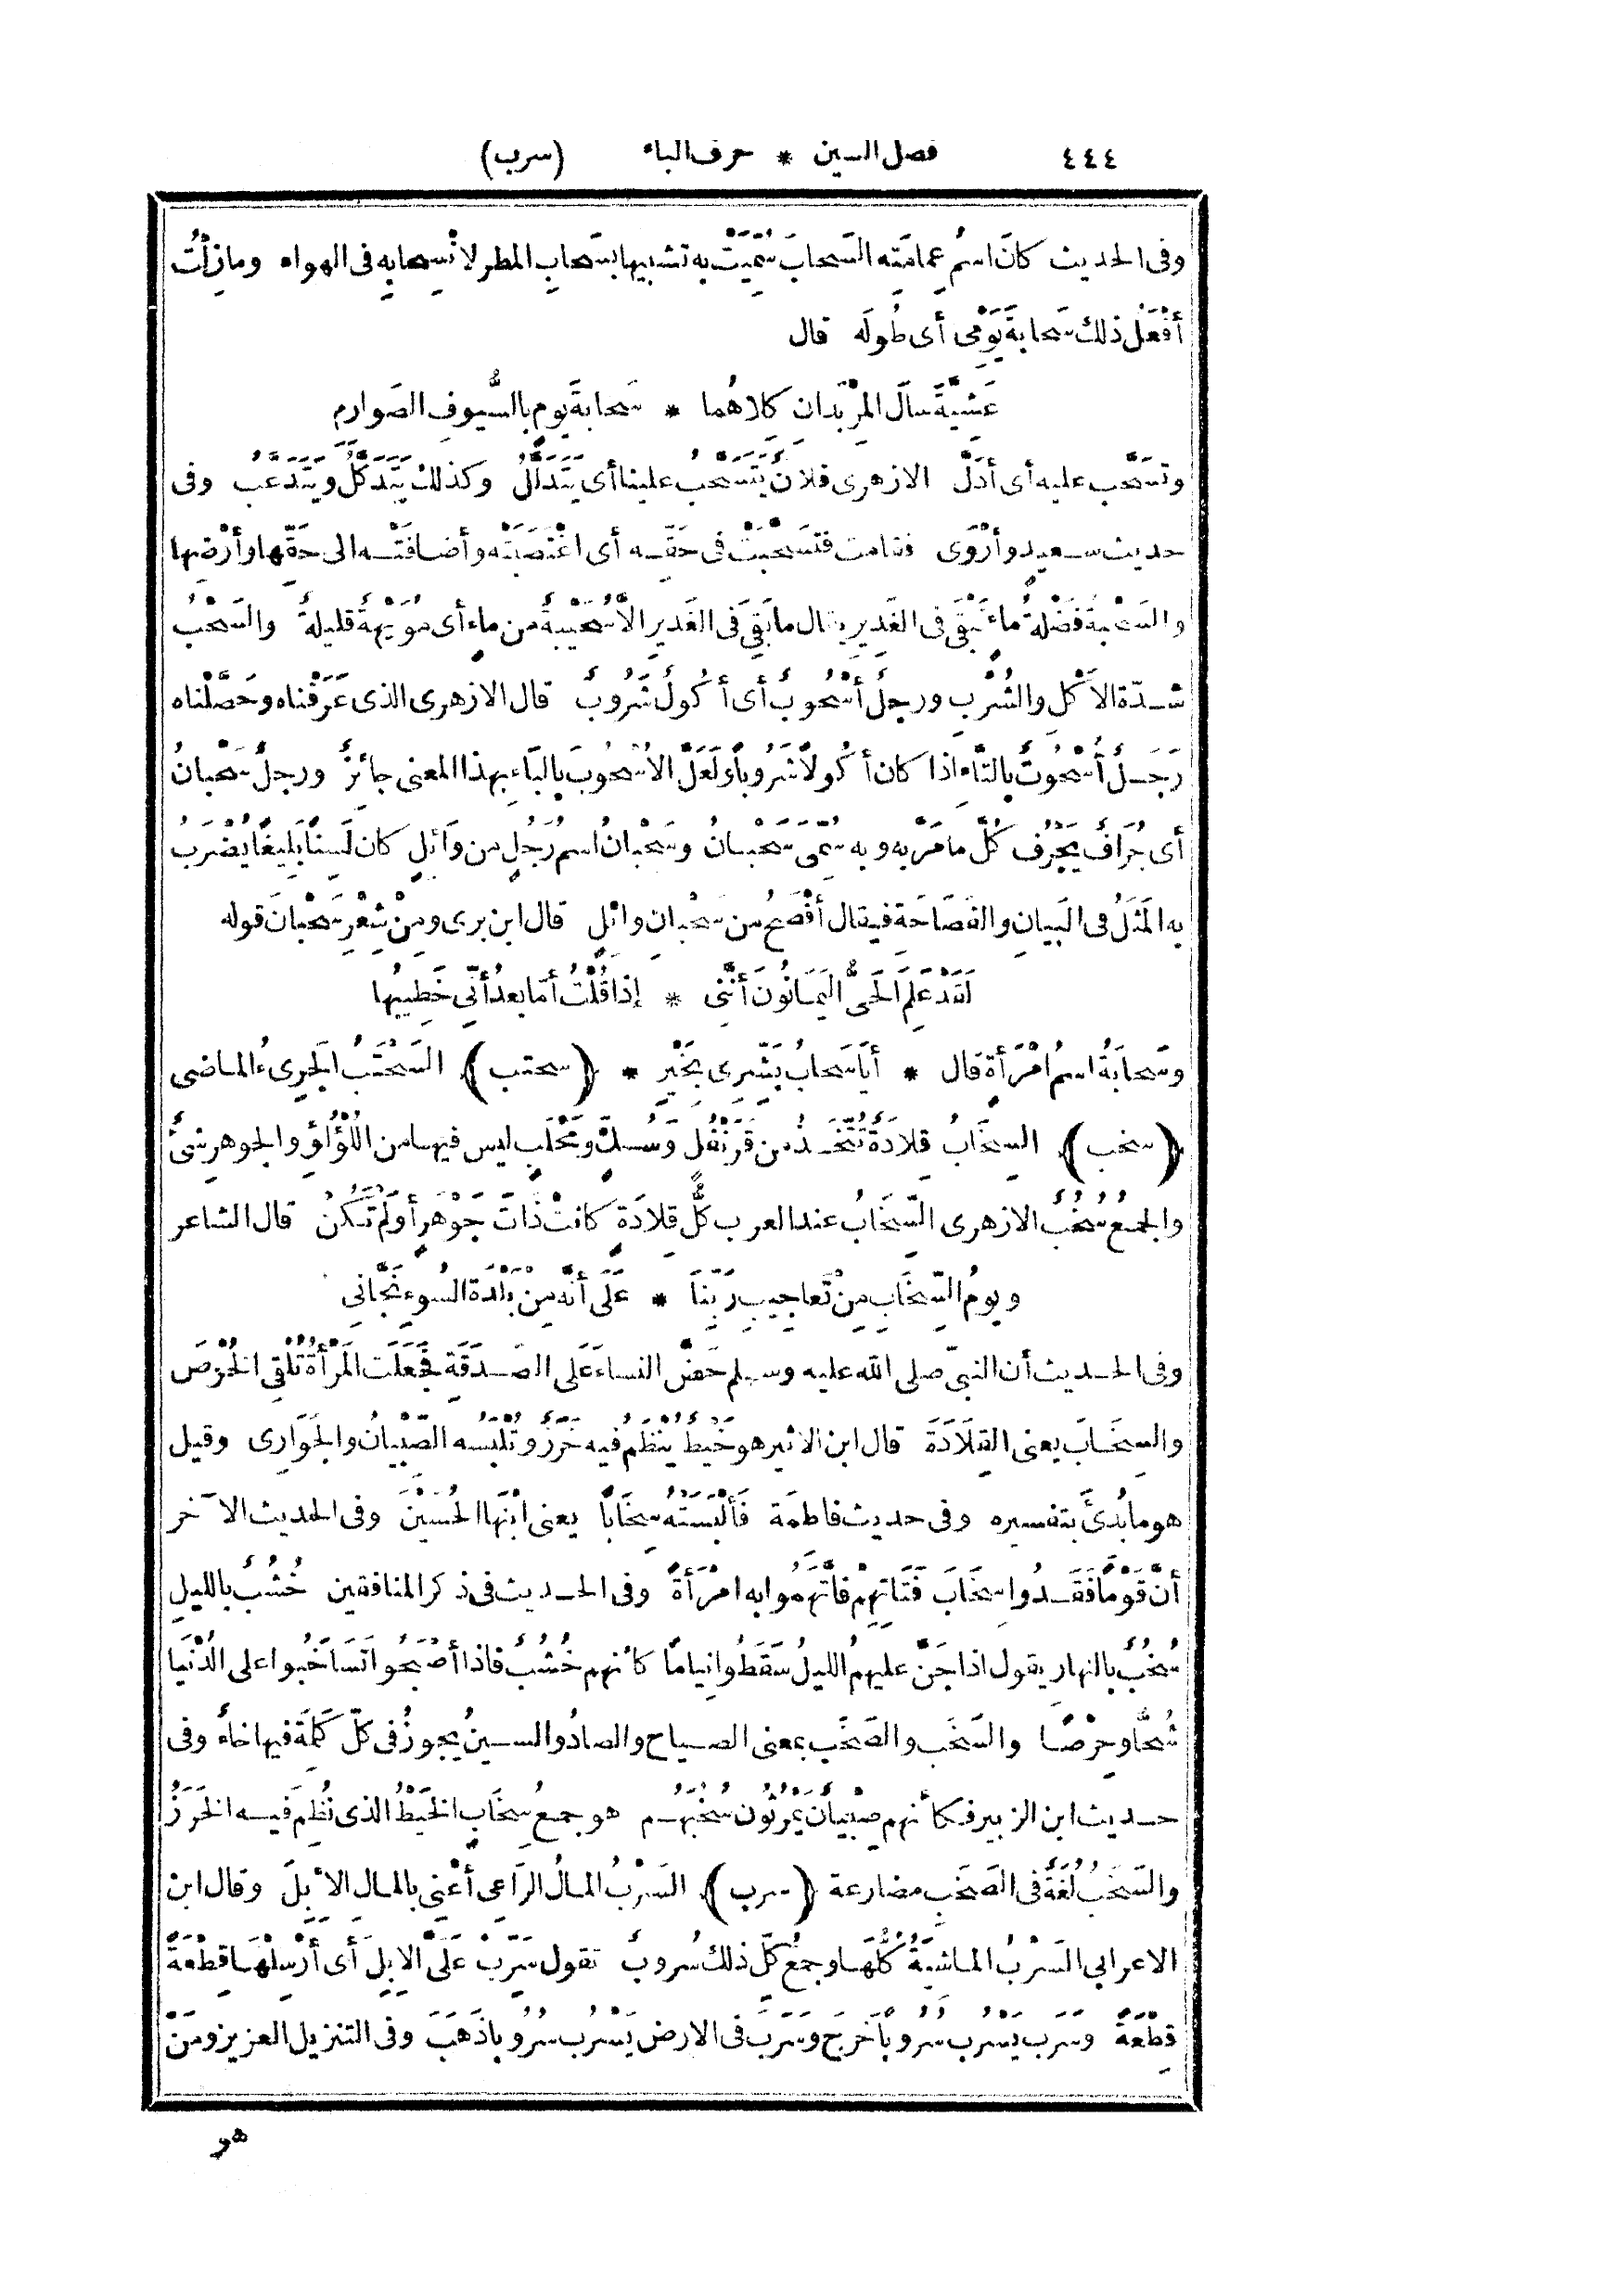 ٤٤٤ فصل السين * حرف الباء (سرب)
وفى الحديث كانَ اسمُ عِمامَتِه السَحابَ سُمِّيَتْ به تشبيها بسَحابِ المطر لانْسِحابِه فى الهواء ومازِلْتُ
أَفْعَلُ ذلك سَحابةَ يَوْمِى أى طُولَه قال
عَشِيَّةَ سالَ المِرْبَدانِ كِلاهُما * سَحابةَ يومٍ بالسُّيوفِ الصَوارمِ
وتَسَحَّب عليه أى أَدَلَّ الازهرى فلانٌ يَتَسَحَّبُ علينا أى يَتَدَلَّلُ وكذلك يَتَدَكَّلُ ويَتَدَعَّبُ وفى
حديث سعيد وأَرْوَى فقامت فتَسَحَّبَتْ فى حَقِّه أى اغْتَصَبَتْه وأضافَتْه الى حَقِّها وأَرْضِها
والسَحْبةُ فَضْلةُ ماءٍ تَبْقَى فى الغَدِير يقال ما بَقِىَ فى الغَدِيرِ الاَّ سُحَيْبةٌ من ماءٍ أى مُوَيْهةٌ قليلةٌ والسَحْبُ
شدّة الاَكْلِ والشُرْبِ ورجلٌ أُسْحُوبٌ أى أَكُولٌ شَرُوبٌ قال الازهرى الذى عَرَفْناه وحَصَّلْناه
رَجَلٌ أُسْحُوتٌ بالتاءِ اذا كان أَكُولاً شَرُوباً ولَعَلَّ الاُسْحُوبَ بالباءِ بهذا المعنى جائزٌ ورجلٌ سَحْبانُ
أى جُرَافٌ يَجْرُفُ كُلَّ ما مَرَّ به وبه سُمِّىَ سَحْبانُ وسَحْبانُ اسمُ رَجُلٍ من وَائِلٍ كان لَسِنًا بَلِيغًا يُضْرَبُ
به المَثَلُ فى البَيانِ والفَصَاحَةِ فيقال أَفْصَحُ من سَحْبانِ وائلٍ قال ابن برى ومِنْ شِعْرِ سَحْبانَ قوله
لَقَدْ عَلِمَ الحَىُّ اليَمَانُونَ أَنَّنِى * إذا قُلْتُ أَمّا بعدُ أَنِّى خَطِيبُها
وسَحابَةُ اسمُ امْرَأَةٍ قال * أَيَا سَحابُ بَشِّرِى بخَيْرِ * (سحتب) السَحْتَبُ الجَرِىءُ الماضى
(سخب) السِخَابُ قِلادَةٌ تُتَّخَذُ من قَرَنْفُلٍ وسُكٍّ ومَحْلَبٍ ليس فيها من اللُؤْلُؤِ والجوهر شىءٌ
والجمعُ سُخُبٌ الازهرى السِّخَابُ عند العرب كُلُّ قِلادَةٍ كانتْ ذَاتَ جَوْهَرٍ أو لَمْ تَكُنْ قال الشاعر
ويومُ السِّخَابِ مِنْ تَعاجِيبِ رَبِّنَا * عَلَى أَنَّه مِنْ بَلْدَةِ السُوءِ نَجَّانِى
وفى الحديث أن النبىّ صلى الله عليه وسلم حَضَّ النساءَ عَلَى الصَدَقَةِ فجَعَلَت المَرْأَةُ تُلْقِى الخُرْصَ
والسِخَابَ يعنى القِلَادَةَ قال ابن الاثير هو خَيْطٌ يُنْظَمُ فيه خَرَزٌ وتُلْبَسُه الصِّبْيانُ والجَوَارِى وقيل
هو ما بُدِئَ بتفسيره وفى حديث فاطمَةَ فأَلْبَسَتْهُ سِخَابًا يعنى ابْنَهَا الحُسَيْنَ وفى الحديث الآخر
أنَّ قَوْمًا فَقَدُوا سِخَابَ فَتَاتِهِمْ فاتَّهَمُوا به امْرَأَةً وفى الحديث فى ذكر المنافقين خُشُبٌ بالليلِ
سُخُبٌ بالنهار يقول اذا جَنَّ عليهم الليلُ سَقَطُوا نِياماً كأنهم خُشُبٌ فاذا أَصْبَحُوا تَسَاخَبُوا على الدُنْيَا
شُحًّا وحِرْصًا والسَخَب والصَخَب بمعنى الصياح والصادُ والسينُ يجوزُ فى كلّ كَلِمَةٍ فيها خاءٌ وفى
حديث ابن الزبير فكأنهم صِبْيانٌ يَمْرُثُون سُخُبَهم هو جمعُ سِخَابٍ الخَيْطُ الذى نُظِمَ فيه الخَرَزُ
والسَخَبُ لُغَةٌ فى الصَخَبِ مضارعة (سرب) السَرْبُ المالُ الرَاعِى أَعْنِى بالمالِ الاِبِلَ وقال ابن
الاعرابى السَرْبُ الماشيَةُ كُلُّهَا وجمعُ كلّ ذلك سُروبٌ تقول سَرِّبْ عَلَىَّ الاِبِلَ أى أَرْسِلْهَا قِطْعَةً
قِطْعَةً وسَرَب يَسْرُب سُرُوباً خَرَجَ وسَرَبَ فى الارض يَسْرُب سُرُوباً ذَهَبَ وفى التنزيل العزيز ومَنْ
هو